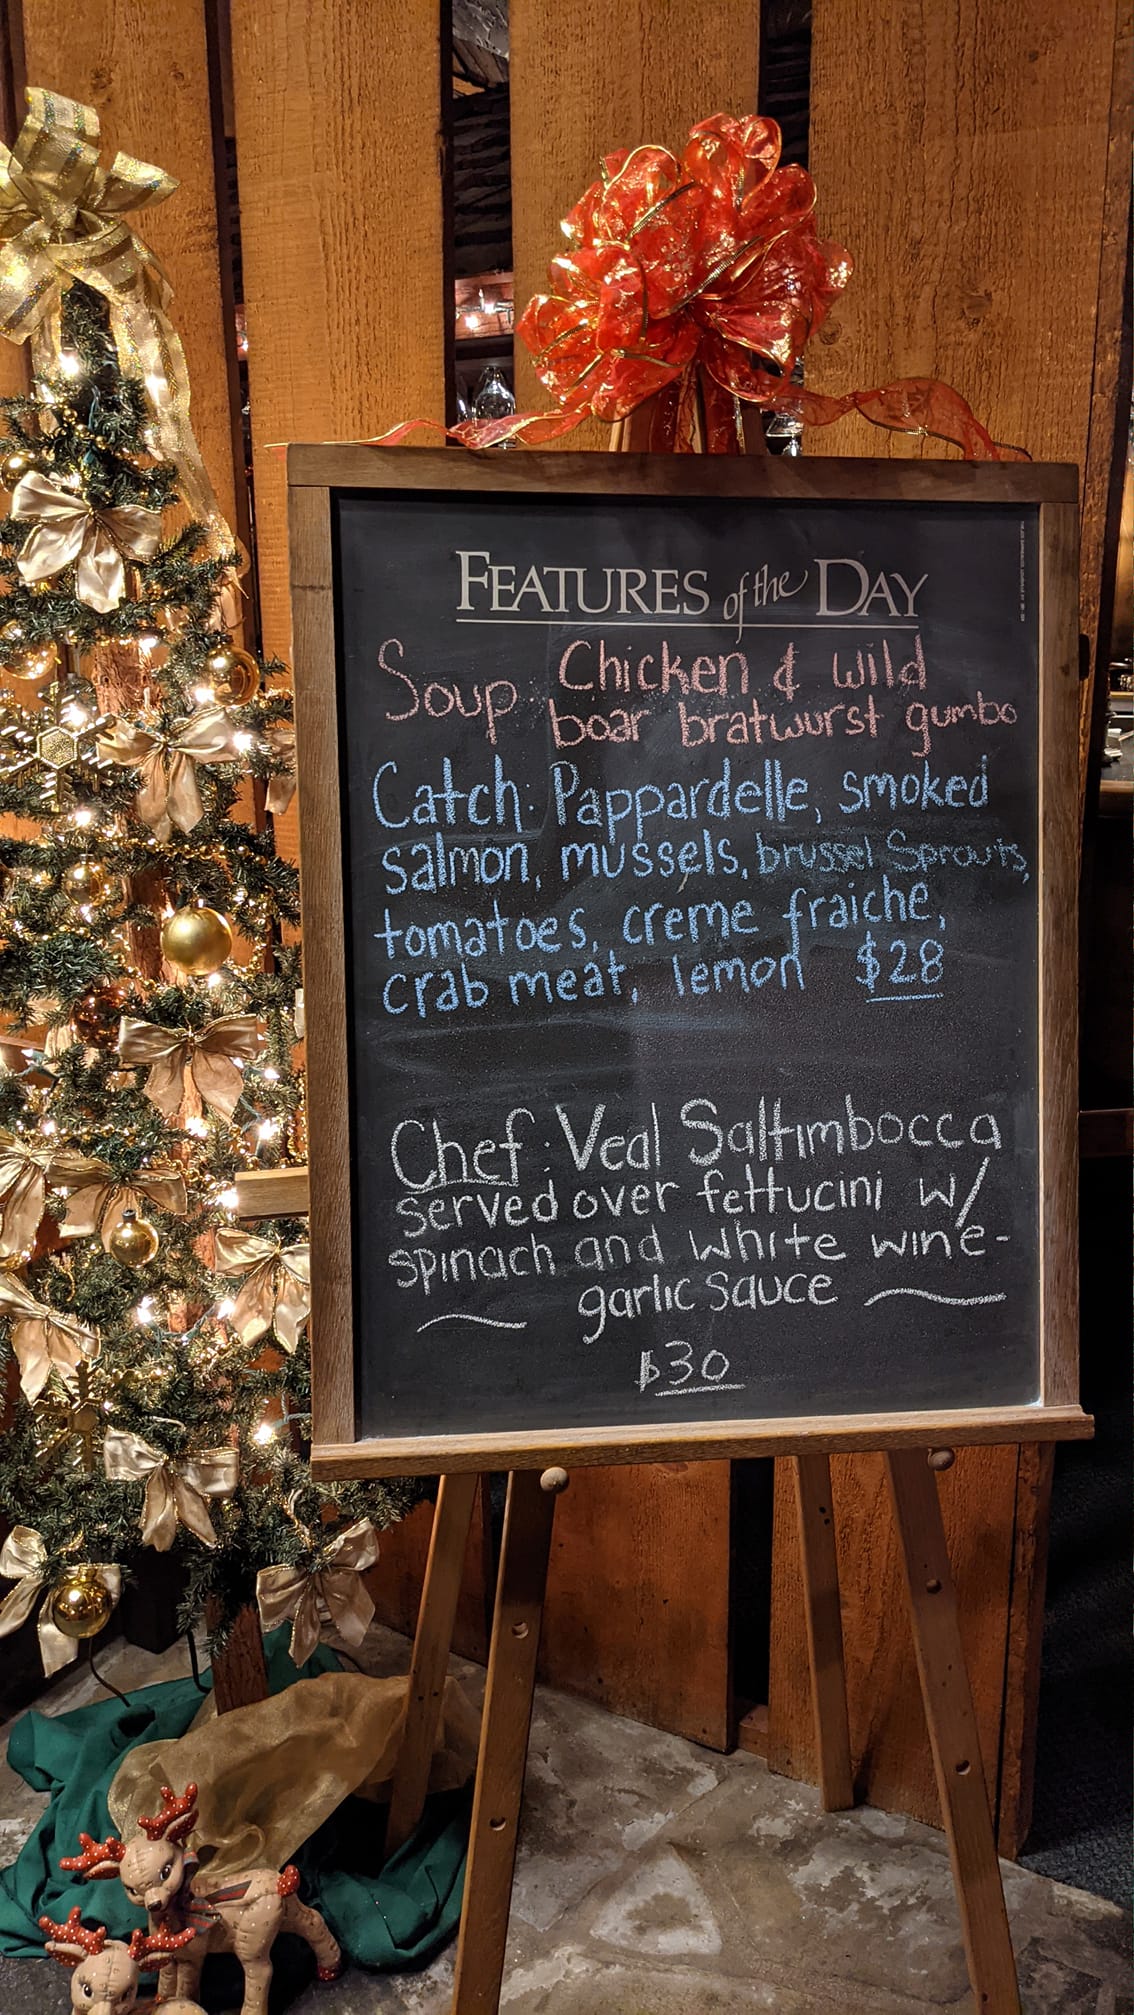 FEATURES of the DAY
Soup: Chicken & wild
boar bratwurst gumbo
Catch: Pappardelle, smoked
salmon, mussels, brussel Sprouts,
tomatoes, creme fraiche,
crab meat, lemon $28
Chef: Veal Saltimbocca
served over fettucini w/
spinach and white wine-
garlic sauce
$30